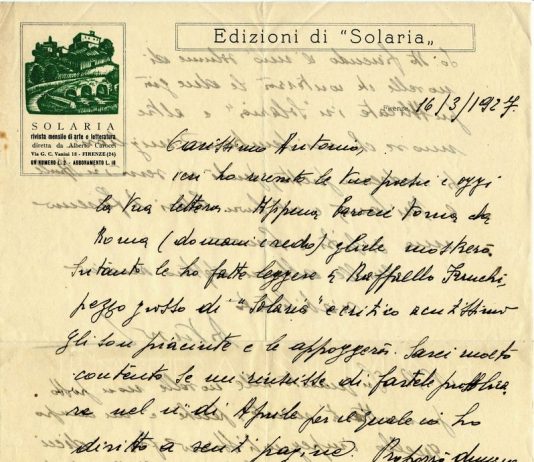 Edizioni di "Solaria„
SOLARIA
rivista mensile di arte e letteratura
diretta da Alberto Carocci
Via G. C. Vanini 18 - FIRENZE (24)
UN NUMERO L. 2 - ABBONAMENTO L. 18
Firenze, 16/3/1927.
Carissimo Antonio,
ieri ho ricevuto le tue poesie e oggi
la tua lettera. Appena Carocci torna da
Roma (domani credo) gliele mostrerò
Intanto le ho fatte leggere a Raffaello Franchi,
pezzo grosso di "Solaria" e critico
Gli son piaciute e le appoggerà. Sarei molto
contento se mi riuscisse di fartele pubblica
re nel n. di Aprile per il quale io ho
diritto a pagine.